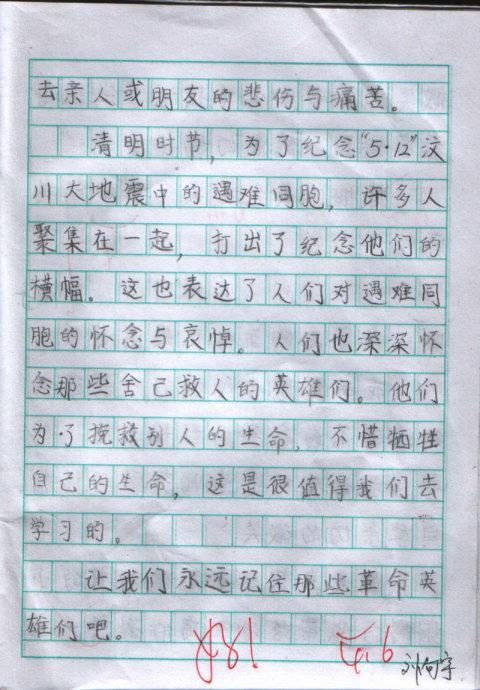 去亲人或朋友的悲伤与痛苦。
清明时节，为了纪念“5·12”汶
川大地震中的遇难同胞，许多人
聚集在一起，打出了纪念他们的
横幅。这也表达了人们对遇难同
胞的怀念与哀悼。人们也深深怀
念那些舍己救人的英雄们。他们
为了挽救别人的生命，不惜牺牲
自己的生命，这是很值得我们去
学习的。
让我们永远记住那些革命英
雄们吧。